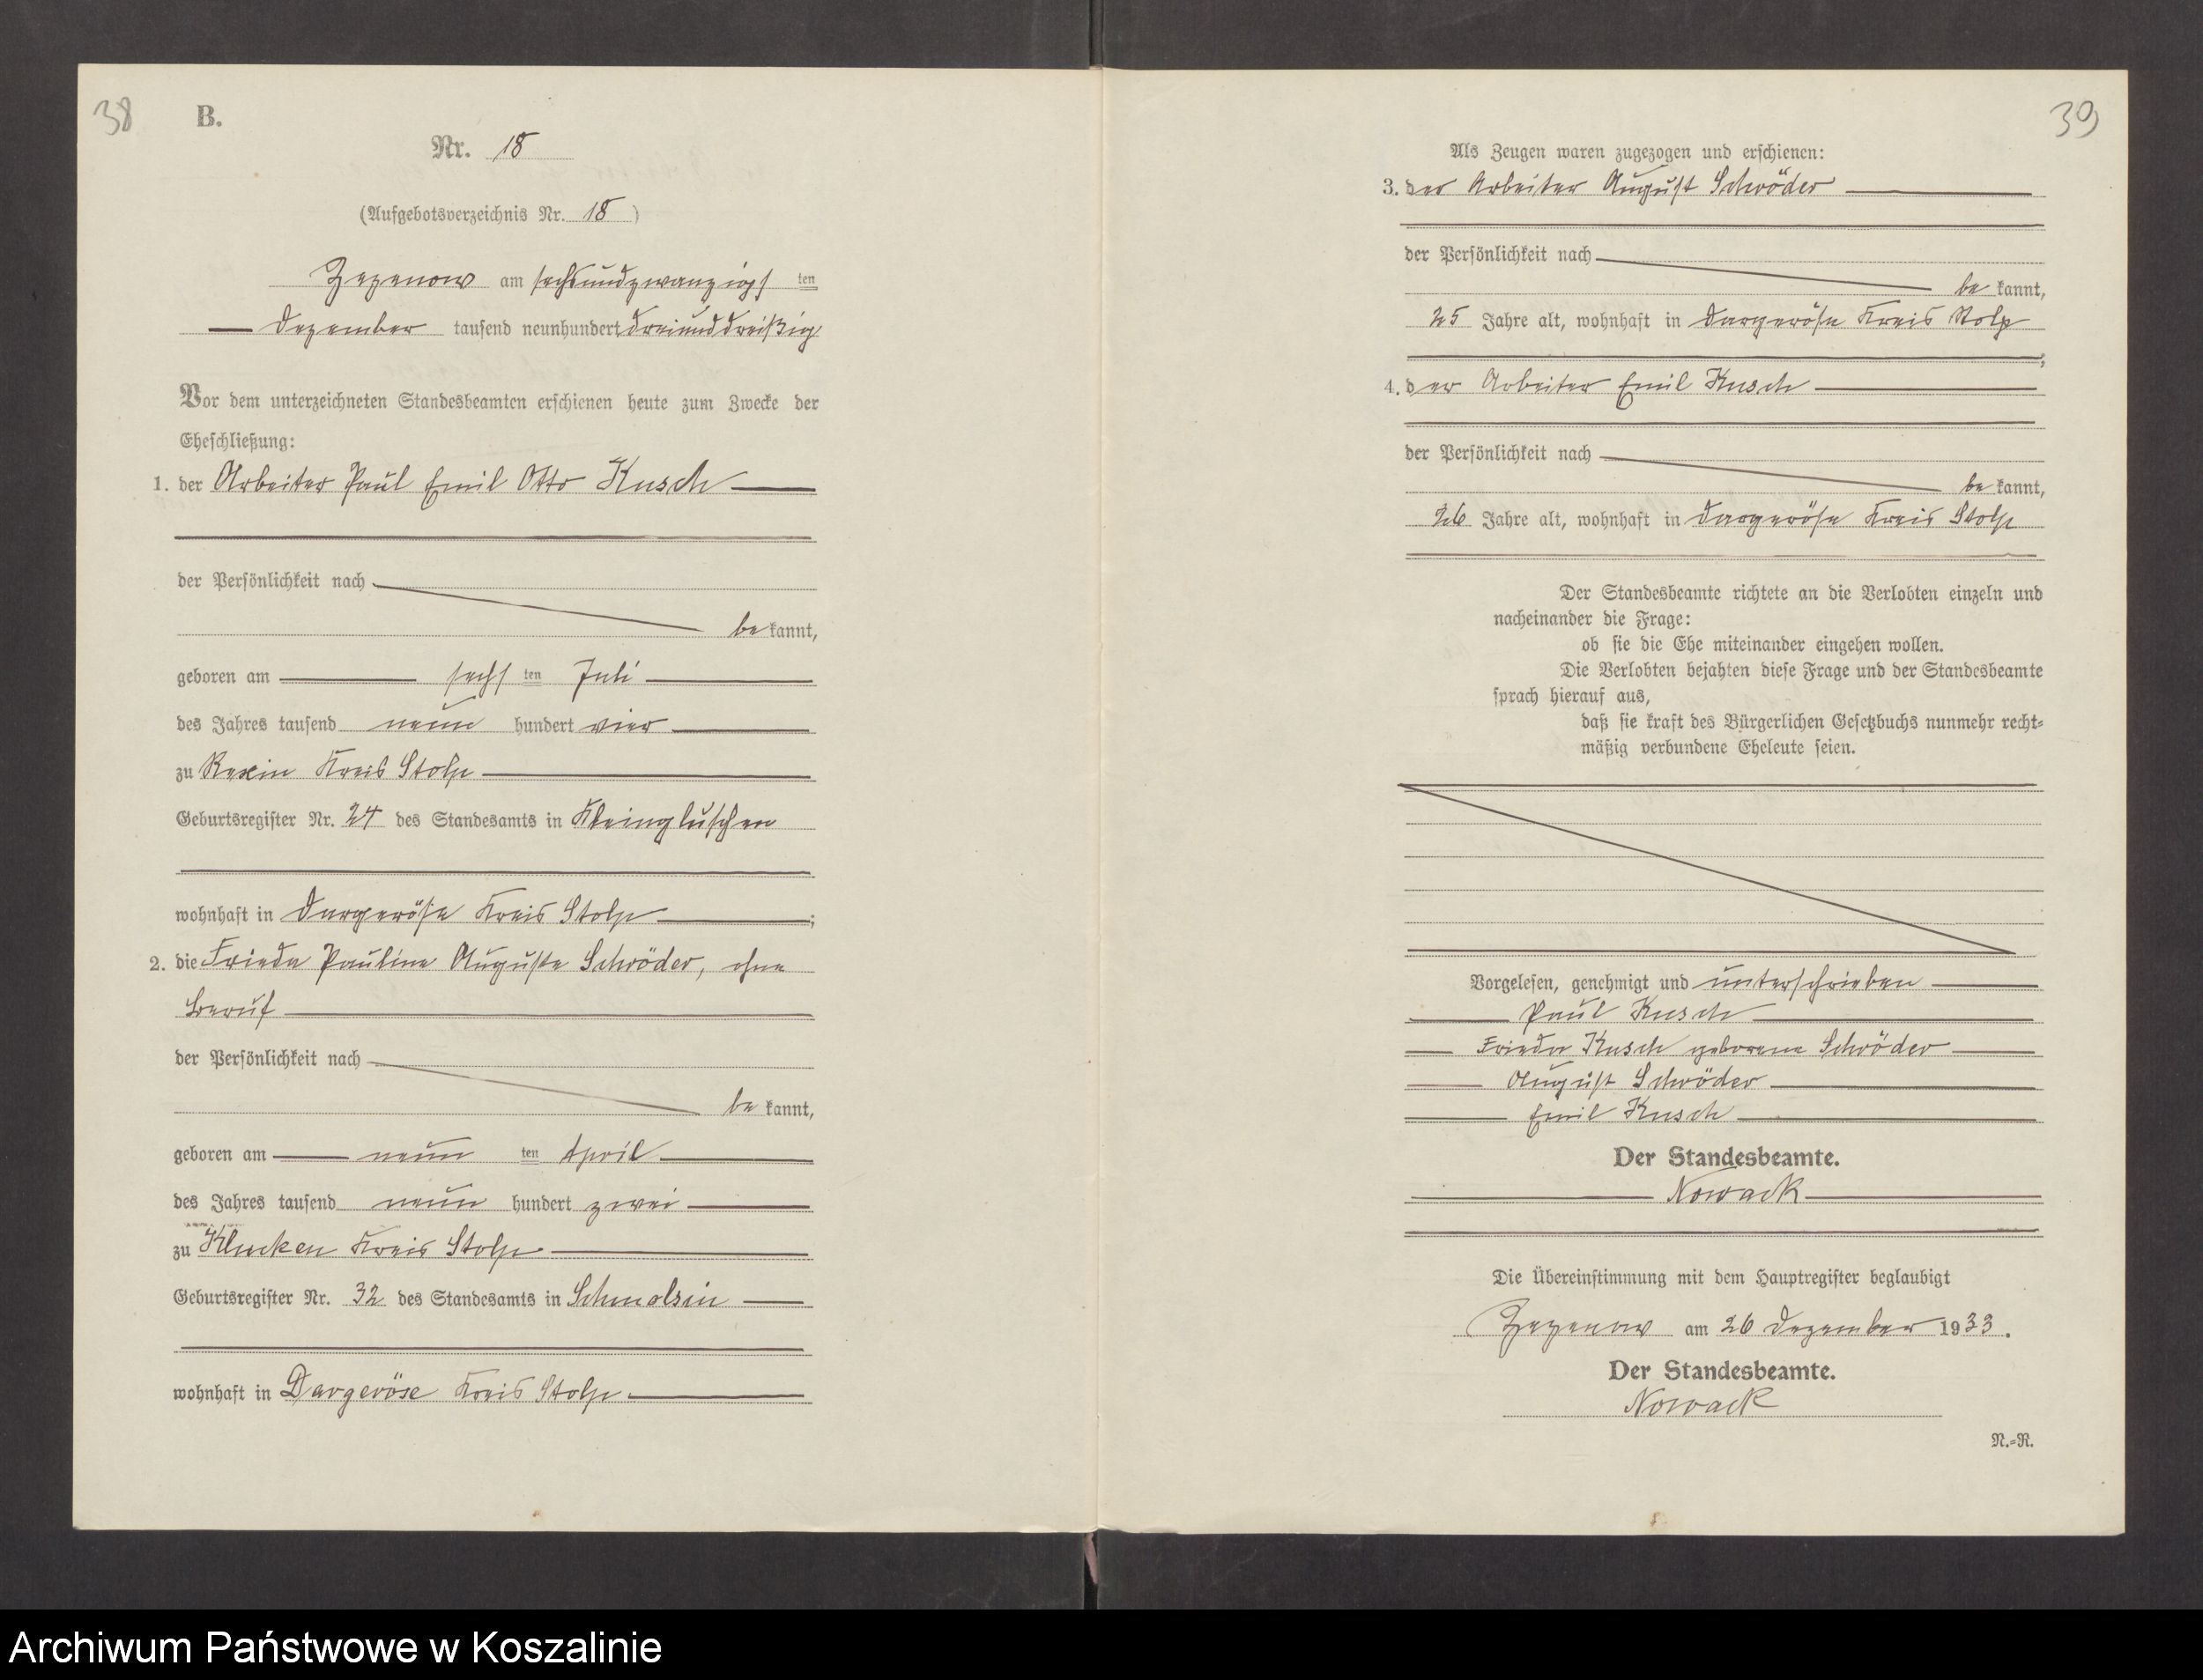 38
B.
Nr. 18
(Aufgebotsverzeichnis Nr. 18)
Zezenow am sechsundzwanzigsten
Dezember tausend neunhundert dreiunddreißig
Vor dem unterzeichneten Standesbeamten erschienen heute zum Zwecke der
Eheschließung:
1. der Arbeiter Paul Emil Otto Kusch
der Persönlichkeit nach
bekannt,
geboren am sechsten Juli
des Jahres tausend neun hundert vier
zu Rexin Kreis Stolp
Geburtsregister Nr. 24 des Standesamts in Kleingluschen
wohnhaft in Dargeröse Kreis Stolp;
2. die Frieda Pauline Auguste Schröder, ohne
Beruf
der Persönlichkeit nach
bekannt,
geboren am neunten April
des Jahres tausend neun hundert zwei
zu Klucken Kreis Stolp
Geburtsregister Nr. 32 des Standesamts in Schmolsin
wohnhaft in Dargeröse Kreis Stolp
39
Als Zeugen waren zugezogen und erschienen:
3. der Arbeiter August Schröder
der Persönlichkeit nach
bekannt,
25 Jahre alt, wohnhaft in Dargeröse Kreis Stolp
;
4. der Arbeiter Emil Kusch
der Persönlichkeit nach
bekannt,
26 Jahre alt, wohnhaft in Dargeröse Kreis Stolp
Der Standesbeamte richtete an die Verlobten einzeln und
nacheinander die Frage:
ob sie die Ehe miteinander eingehen wollen.
Die Verlobten bejahten diese Frage und der Standesbeamte
sprach hierauf aus,
daß sie kraft des Bürgerlichen Gesetzbuchs nunmehr recht-
mäßig verbundene Eheleute seien.
Vorgelesen, genehmigt und unterschrieben
Paul Kusch
Frieda Kusch geborene Schröder
August Schröder
Emil Kusch
Der Standesbeamte.
Nowack
Die Übereinstimmung mit dem Hauptregister beglaubigt
Zezenow am 26 Dezember 1933.
Der Standesbeamte.
Nowack
N.-R.
Archiwum Państwowe w Koszalinie